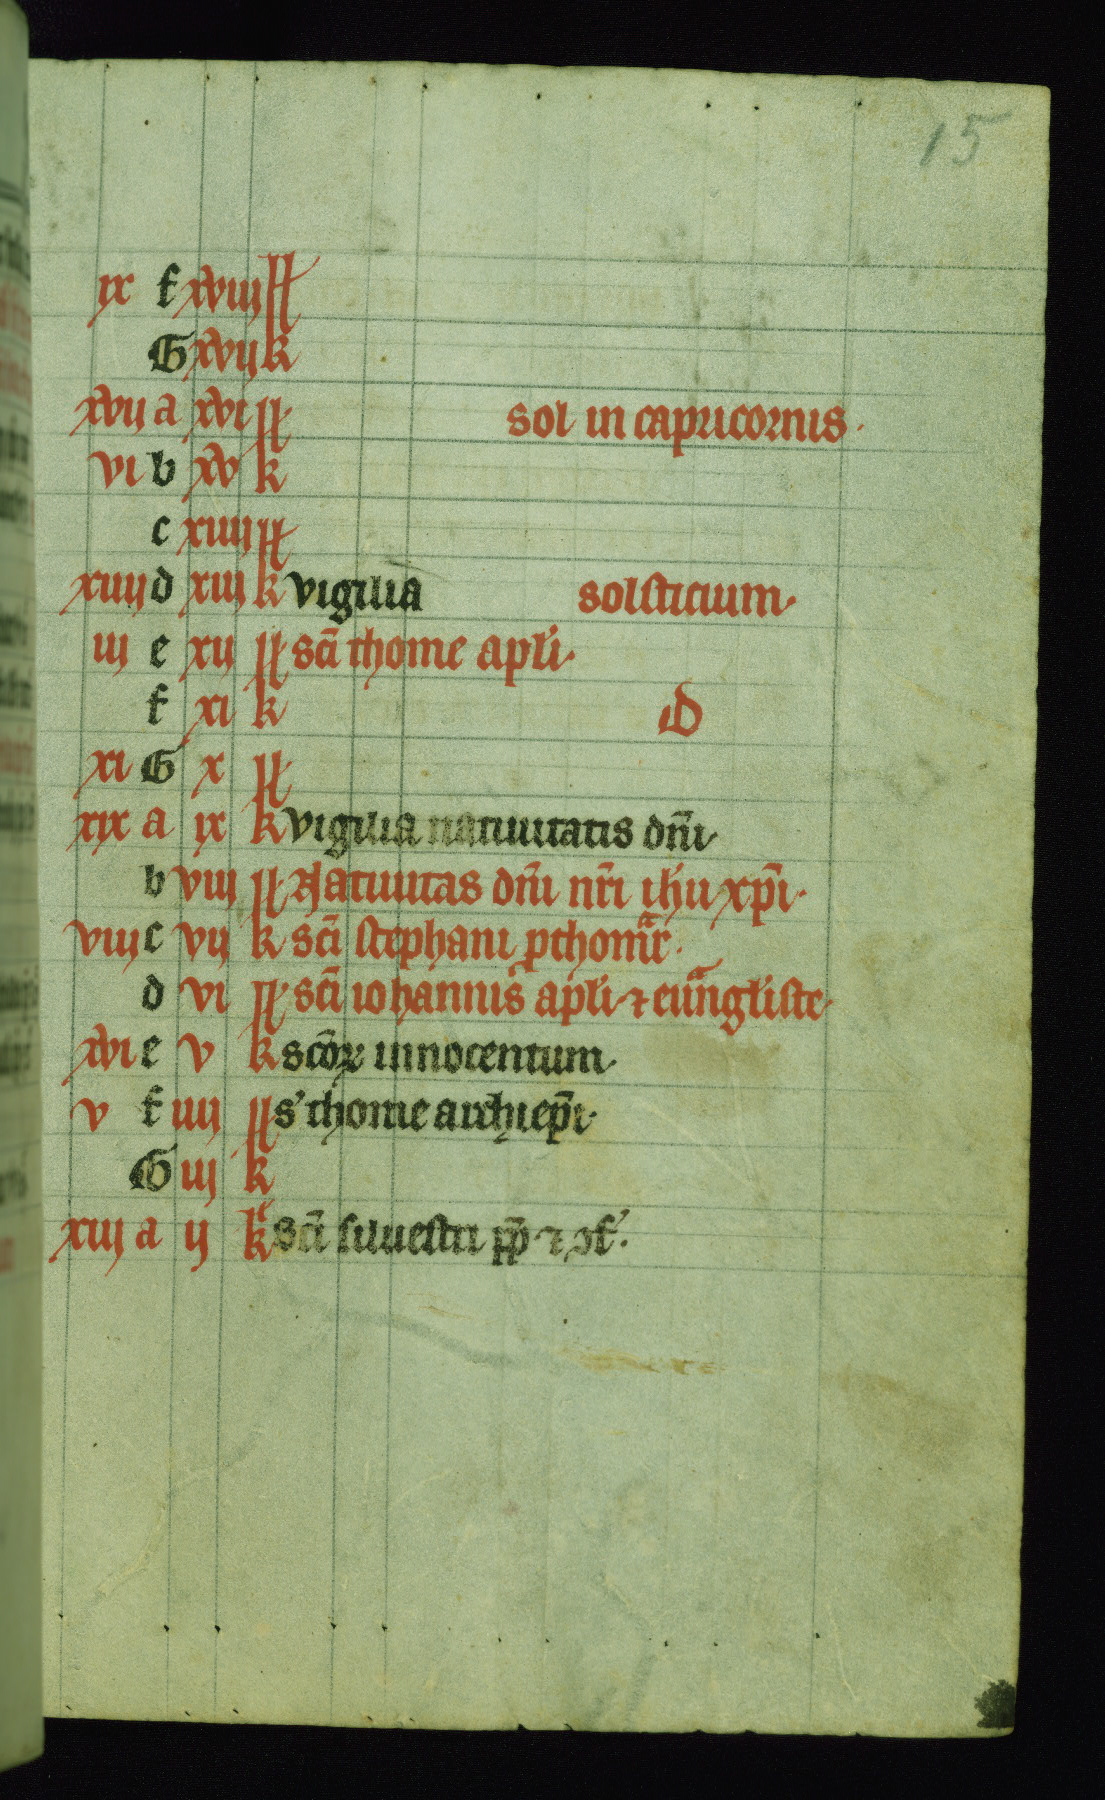 15
ix f xviij kl
G xvij k
xvij a xvi kl sol in capricornis.
vi b xv k
c xiiij kl
xiiij d xiij k vigilia solsticium.
iij e xij kl sc̄i thome apl̄i.
f xi k D
xi G x kl
xix a ix k vigilia natiuitatis dn̄i
b viij kl Natiuitas dn̄i nr̄i ih̄u xp̄i.
viij c vij k sc̄i stephani ꝓthomr̄.
d vi kl sc̄i iohannis apl̄i ⁊ euangl̄iste.
xvi e v k sc̄oꝝ innocentum.
v f iiij kl s' thome archiep̄i.
G iij k
xiij a ij kl sc̄i siluestri pp̄ ⁊ ꝯf'.